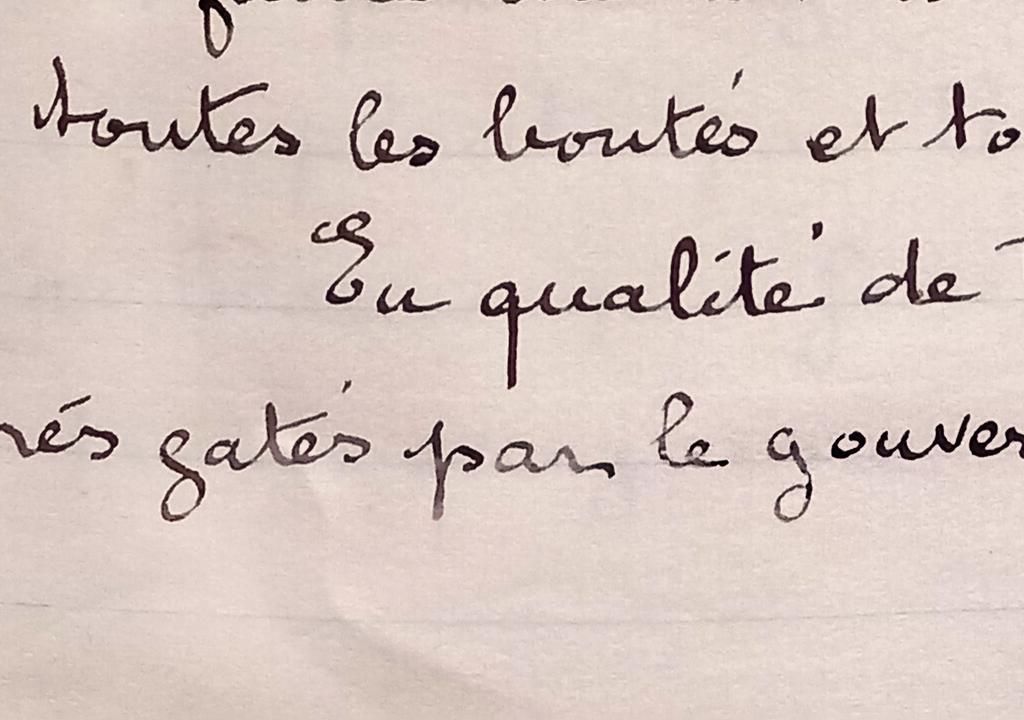 toutes les bontés et to
En qualité de
rés gatés par le gouver